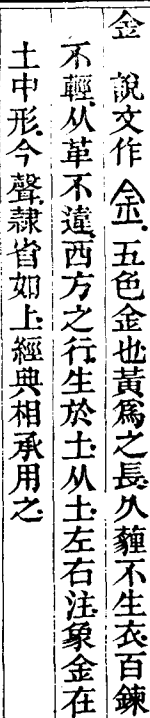 金 說文作金五色金也黃爲之長久薶不生衣百鍊
不輕从革不違西方之行生於土从土左右注象金在
土中形今聲隷省如上經典相承用之